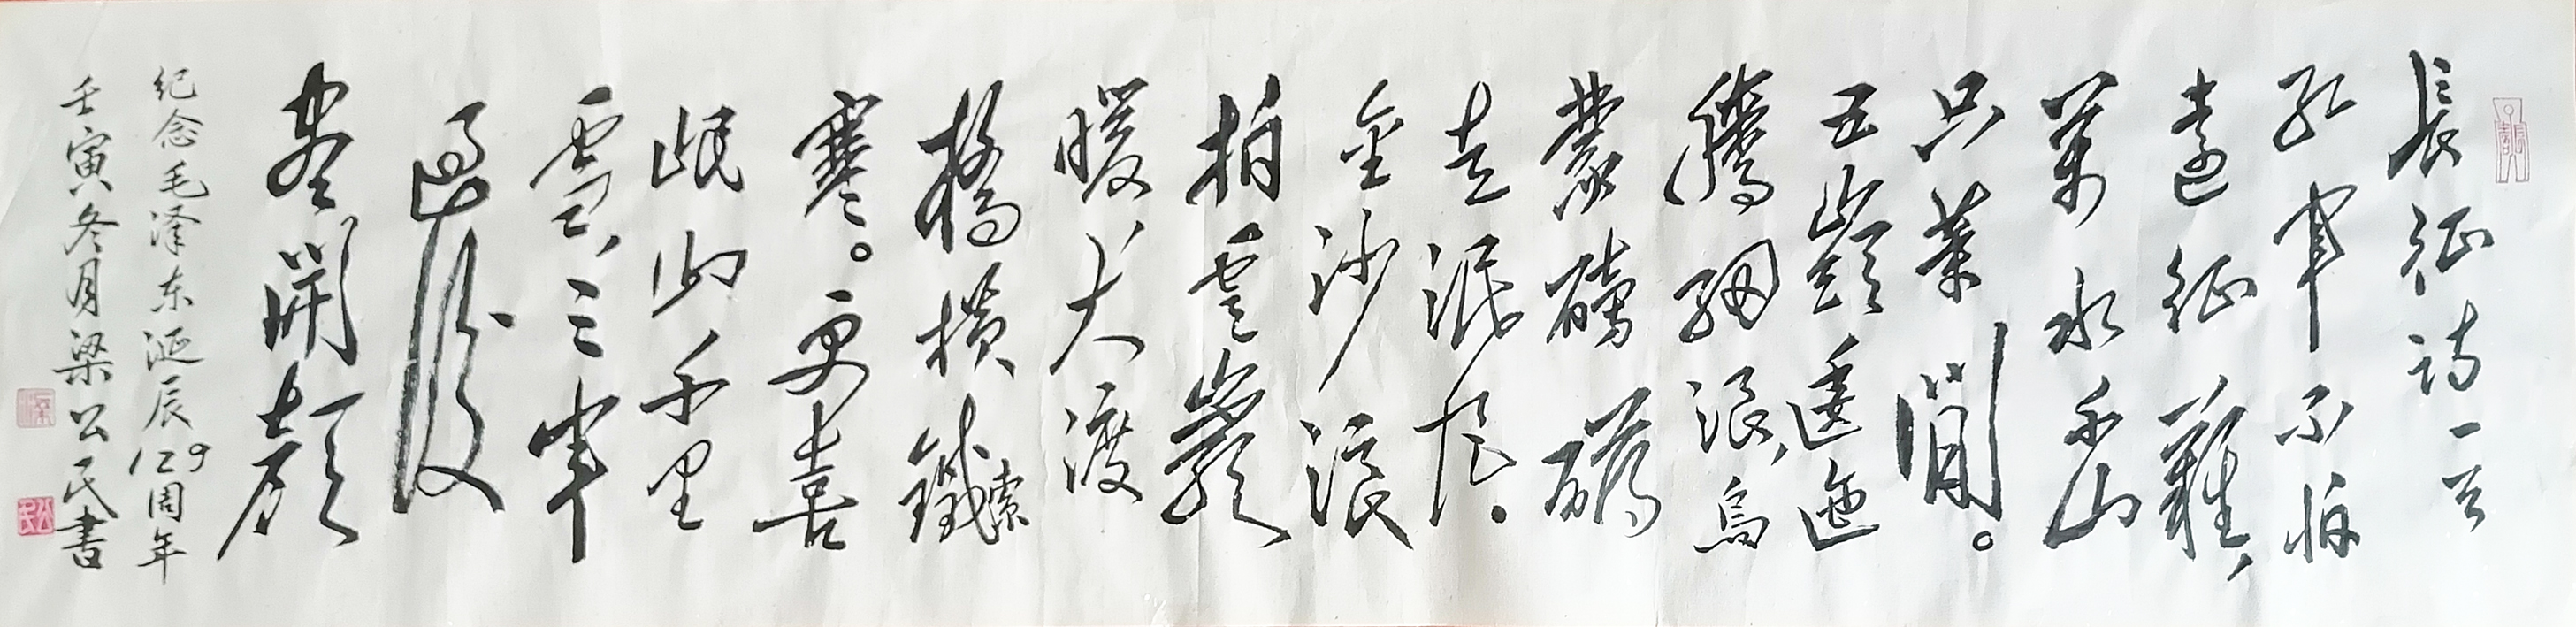 長征诗一首
红军不怕
遠征難，
萬水千山
只等閒。
五嶺逶迤
騰細浪，烏
蒙磅礴
走泥丸。
金沙浪
拍雲巖
暖，大渡
橋橫鐵索
寒。更喜
岷山千里
雪，三军
過後
盡開顏
纪念毛泽东诞辰129周年
壬寅冬月梁公民書